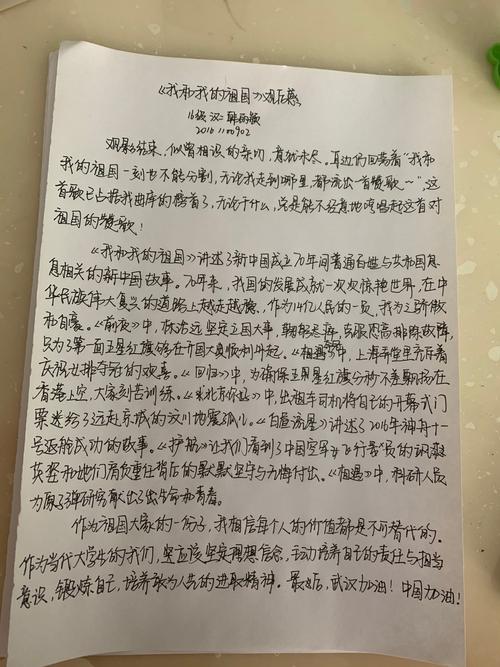 《我和我的祖国》观后感
16级 汉二
2016110902
观影结束，似曾相识的亲切，意犹未尽。耳边仍回荡着“我和
我的祖国一刻也不能分割，无论我走到哪里，都流出一首赞歌~”，这
首歌已占据我曲库的榜首了，无论干什么，总是能不经意地哼唱起这首对
祖国的赞歌！
《我和我的祖国》讲述了新中国成立70年间普通百姓与共和国息
息相关的新中国故事。70年来，我国的发展成就一次次惊艳世界，在中
华民族伟大复兴的道路上越走越稳，作为14亿人民的一员，我为之骄傲
和自豪。《前夜》中，林治远坚定立国大事，克服恐高排除故障，
只为了第一面五星红旗能在开国大典顺利升起。《夺冠》中，上海弄堂里充斥着
庆祝女排夺冠的欢喜。《回归》中，为确保五星红旗分秒不差飘扬在
香港上空，大家刻苦训练。《北京你好》中，出租车司机将自己的开幕式门
票送给了远赴京城的汶川地震孤儿。《白昼流星》讲述了2016年神舟十一
号返航成功的故事。《护航》让我们看到了中国空军女飞行员的飒爽
英姿和她们肩负重任背后的默默坚守与无悔付出。《相遇》中，科研人员
为原子弹研究献出了生命和青春。
作为祖国大家的一份子，我相信每个人的价值都是不可替代的。
作为当代大学生的我们，更应该坚定理想信念，主动培养自己的责任与担当
意识，锻炼自己，培养敢为人先的进取精神。最后，武汉加油！中国加油！